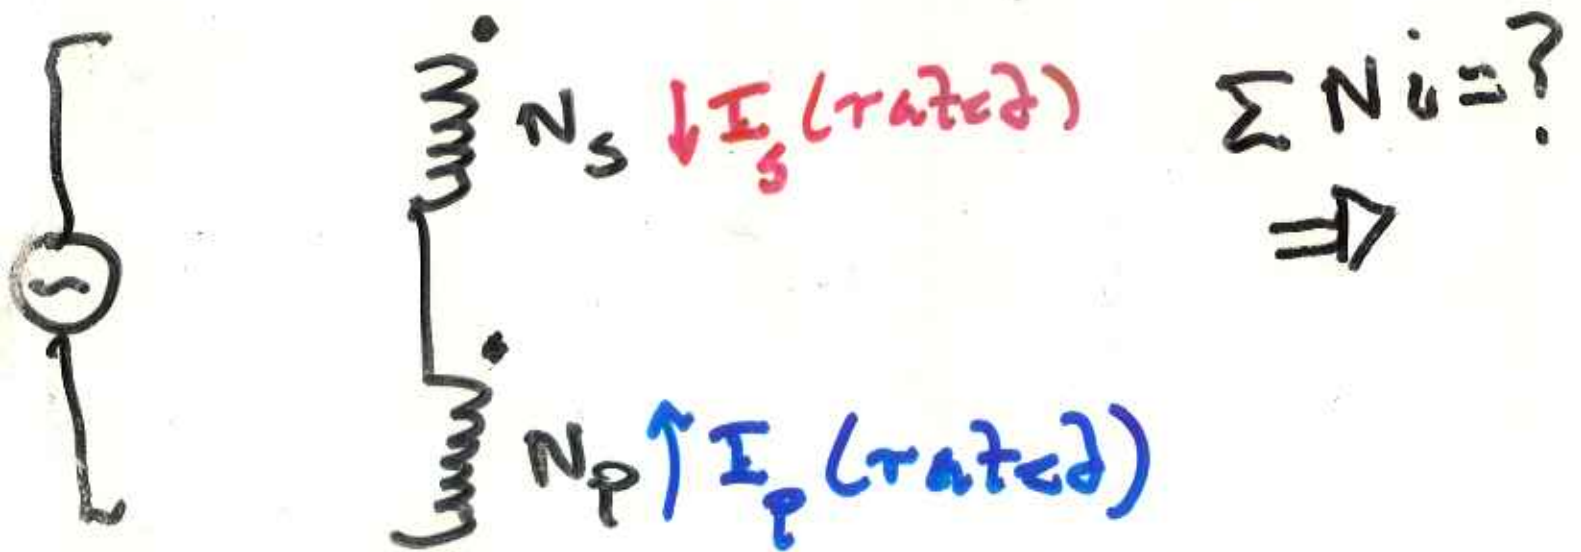 N_s ↓ I_s (rated) Σ N i = ?
⇒
N_p ↑ I_p (rated)